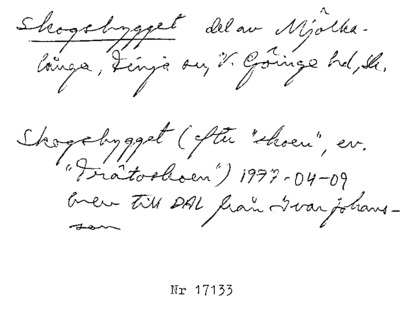 Skogsbygget del av Mjölka-
långa, Finja sn, V. Göinge hd, Sk.
Skogsbygget (efter "skoen", ev.
"Trätoskoen") 1977-04-09
brev till DAL från Ivar Johans-
son
Nr 17133